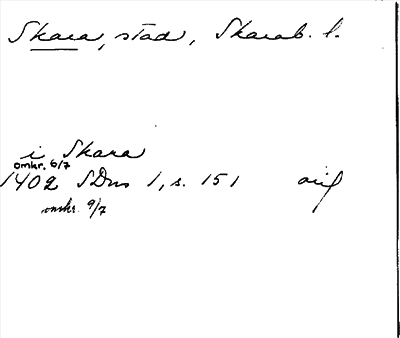 Skara, stad, Skarab. l.
i Skara
omkr. 6/7
1402 SDns 1, s. 151
omkr. 9/7